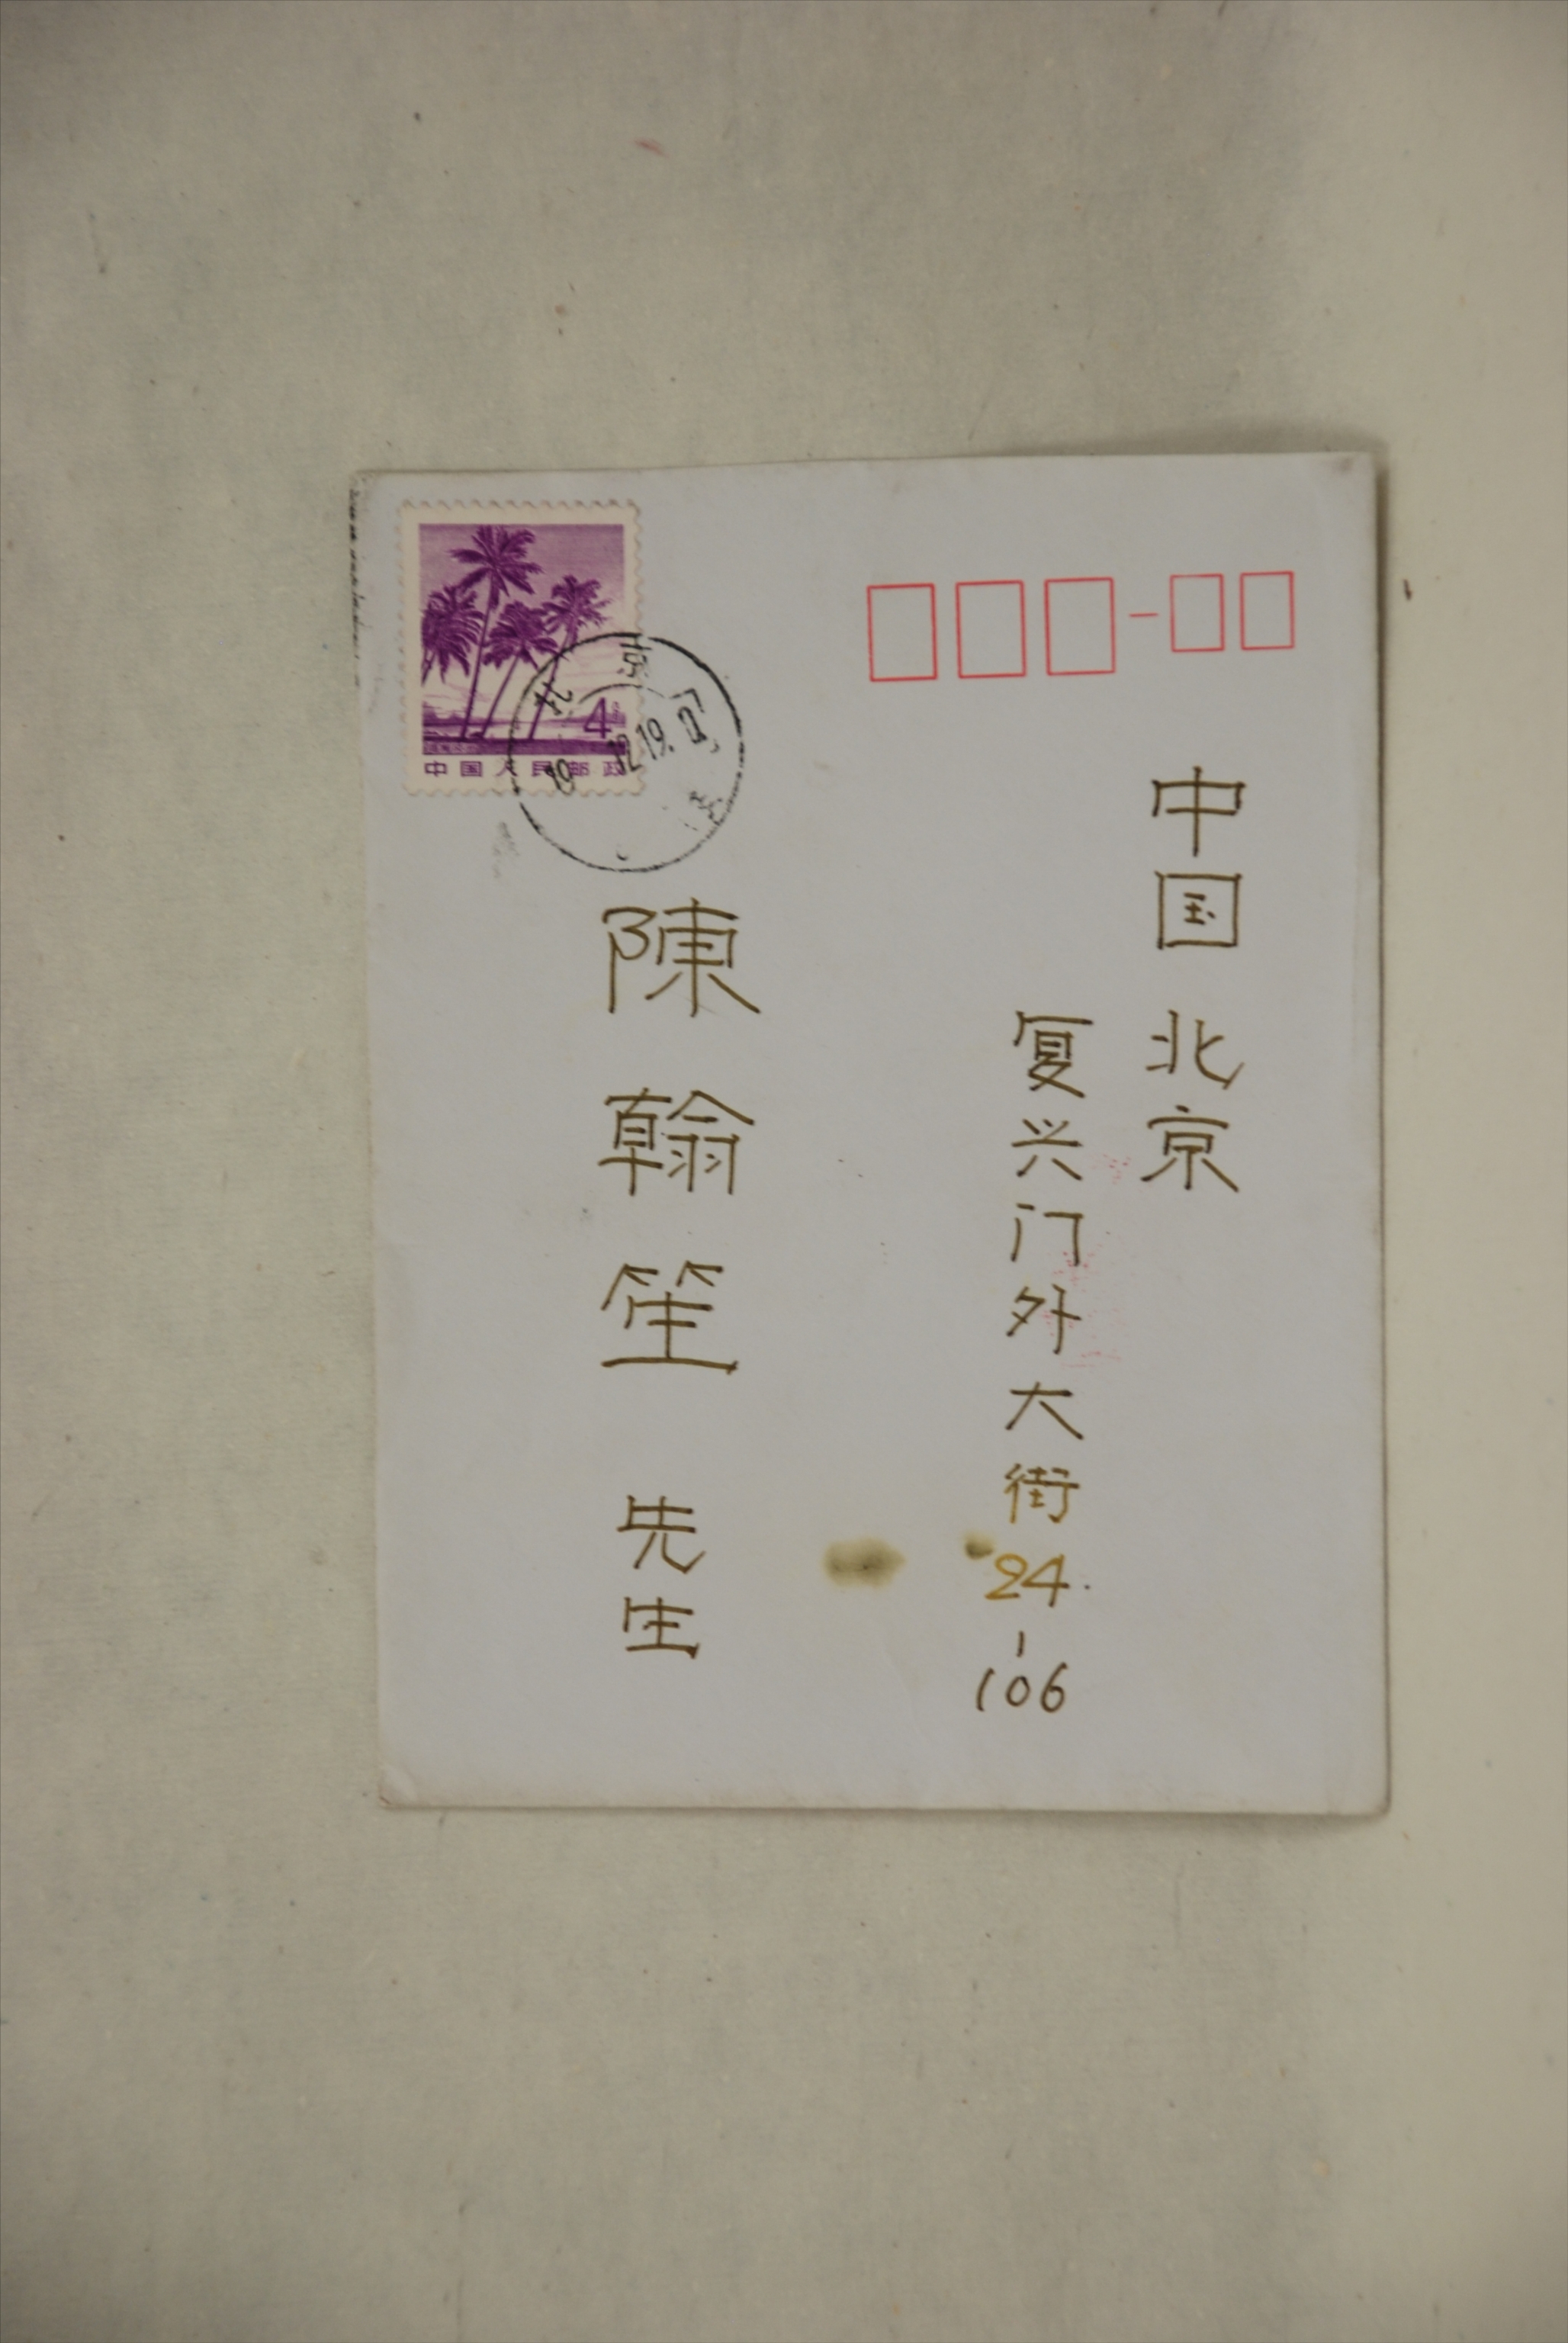 中国 北京
复兴门外大街24-106
陳翰笙 先生
4
中国人民邮政
北京
12.19.